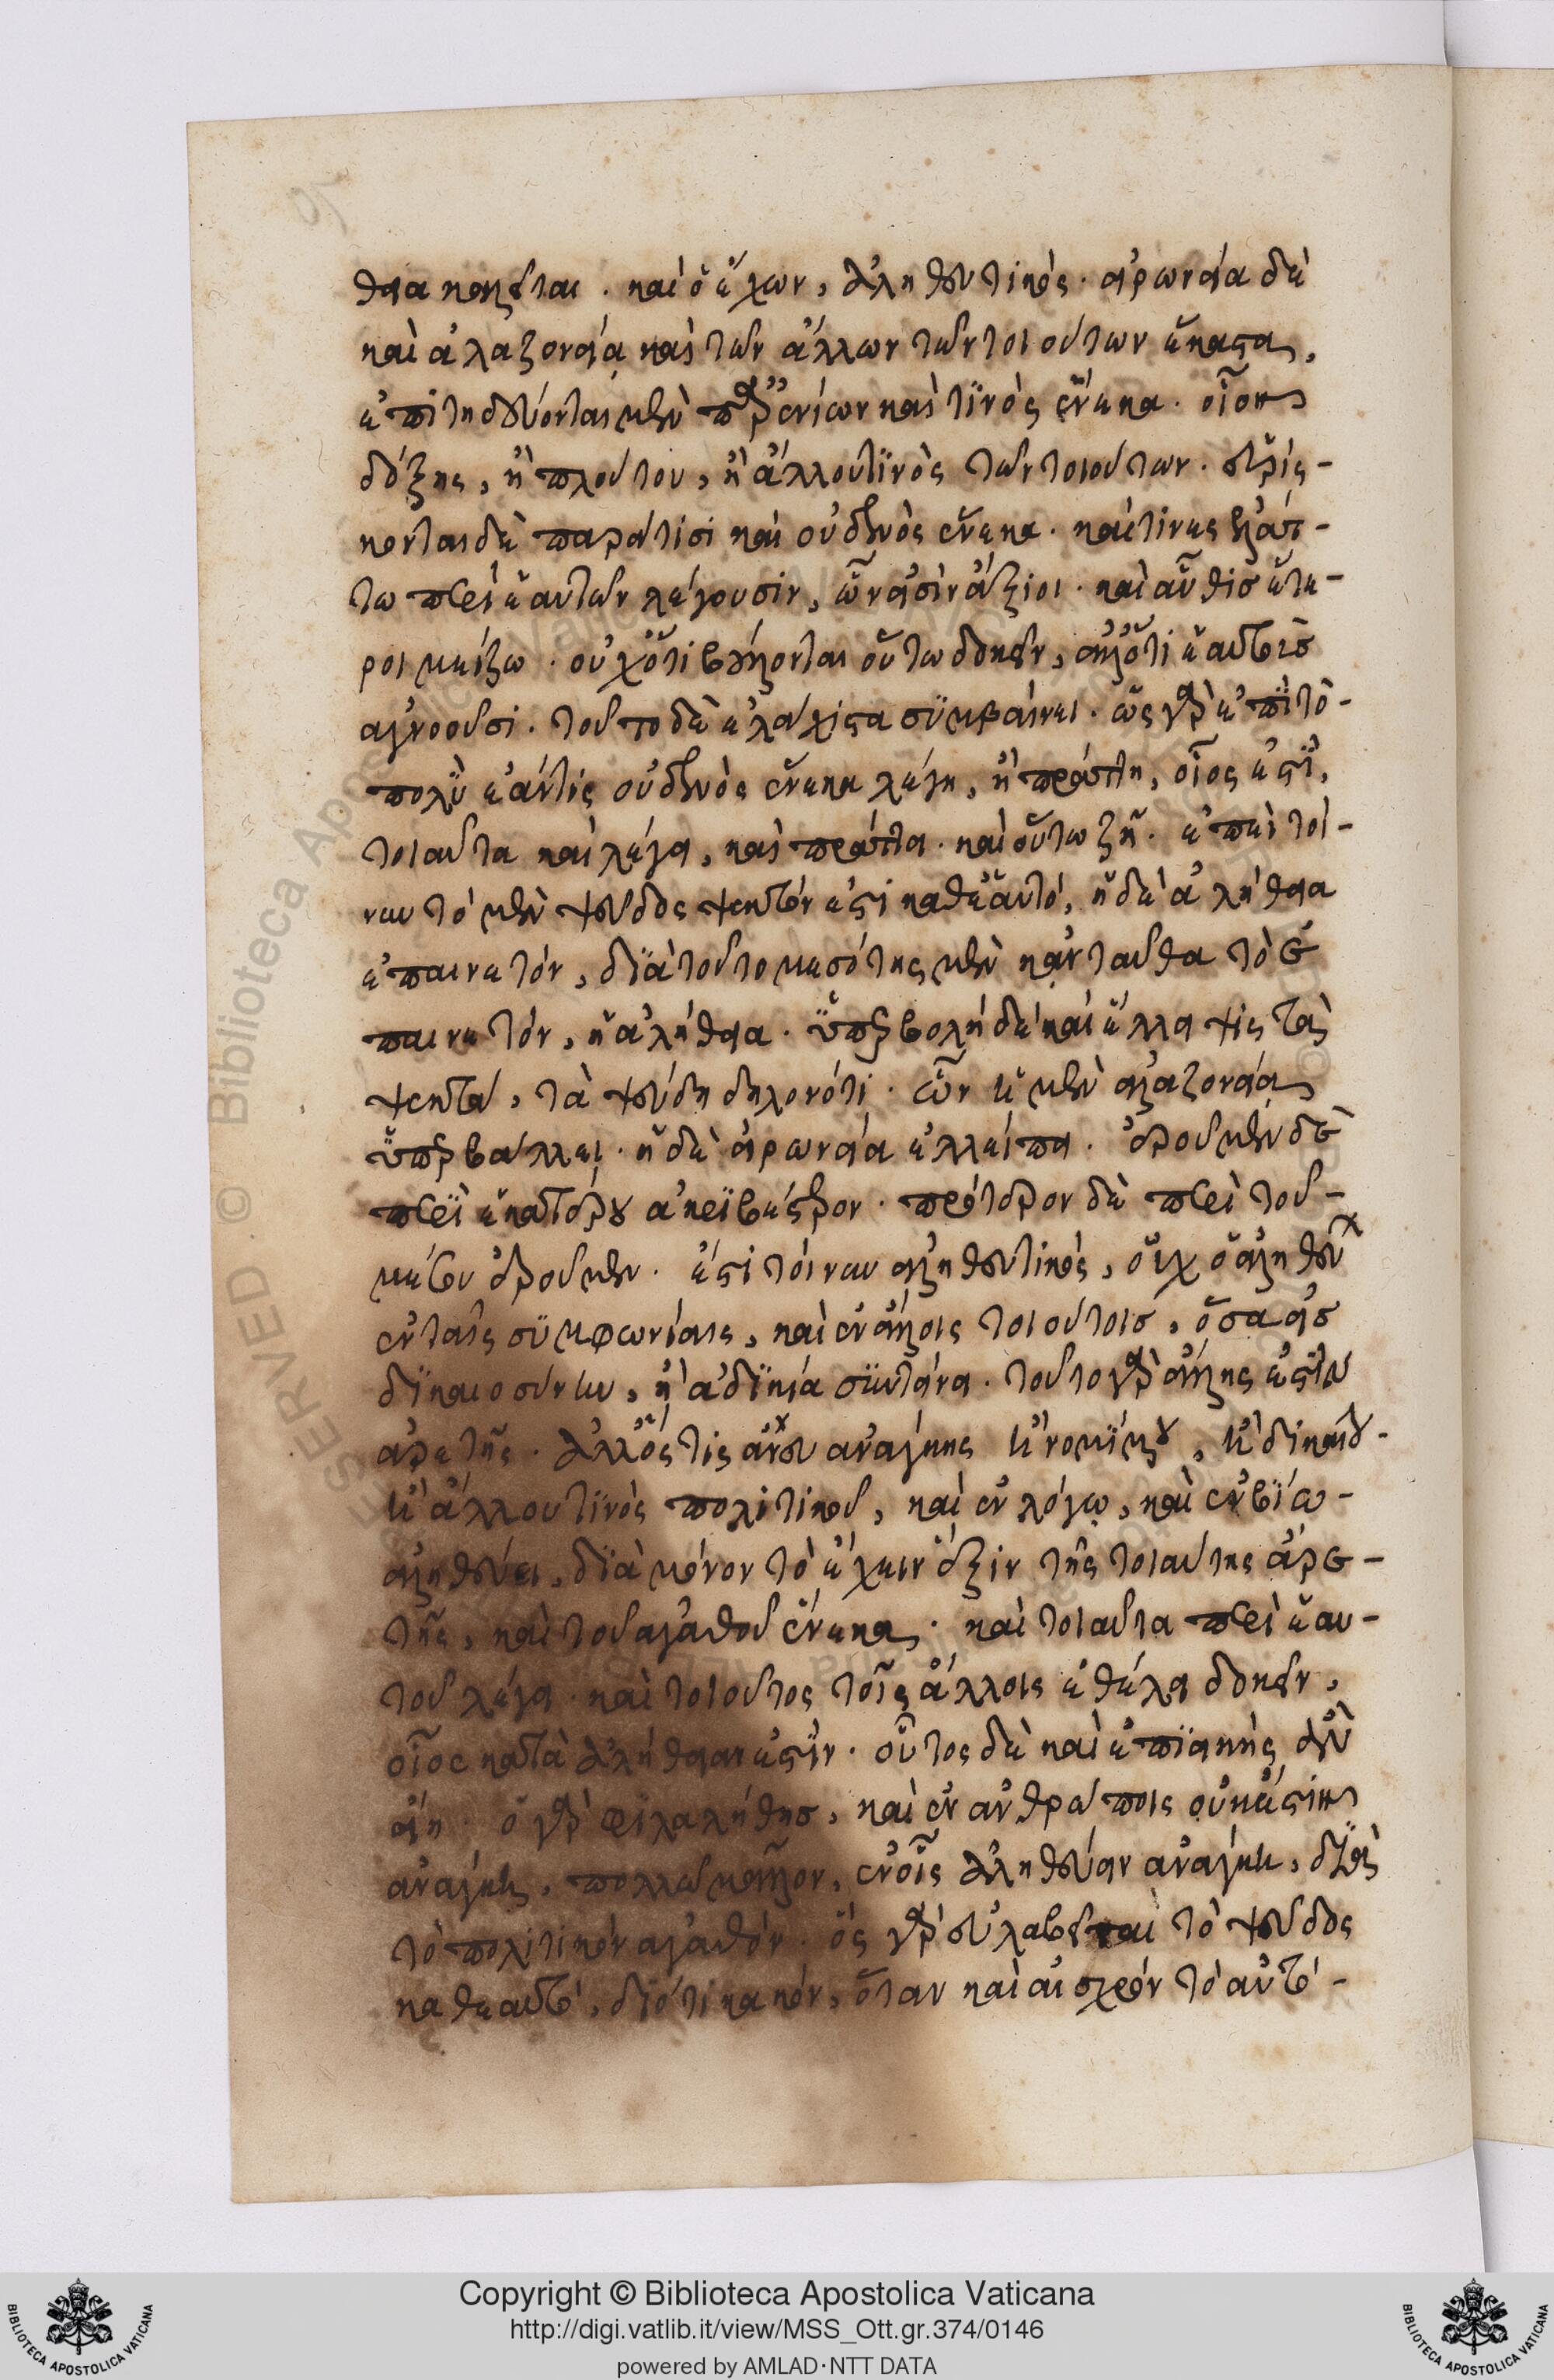 θεια καλεῖται · καὶ ὁ ἔχων, ἀληθευτικός · εἰρωνεία δὲ
καὶ ἀλαζονεία καὶ τῶν ἄλλων τῶν τοιούτων ἕκαστα,
ἐπιτηδεύονται μὲν παρ' ἐνίων καὶ τινὸς ἕνεκα · οἷον
δόξης, ἢ πλούτου, ἢ ἄλλου τινὸς τῶν τοιούτων · εὑρίς-
κονται δὲ παρά τισι καὶ οὐδενὸς ἕνεκα · καί τινες ἐλάτ-
τω περὶ ἑαυτῶν λέγουσιν, ὧν εἰσὶν ἄξιοι · καὶ αὖθις ἕτε-
ροι μείζω · οὐχ ὅτι βούλονται οὕτω δοκεῖν, ἀλλ' ὅτι ἑαυτοὺς
ἀγνοοῦσι · τοῦτο δὲ ἐλάχιστα συμβαίνει · ὡς γὰρ ἐπὶ τὸ
πολὺ ἐάν τις οὐδενὸς ἕνεκα λέγῃ, ἢ πράττῃ, οἷός ἐστι,
τοιαῦτα καὶ λέγει, καὶ πράττει · καὶ οὕτω ζῇ · ἐπεὶ τοί-
νυν τὸ μὲν ψεῦδος ψεκτόν ἐστι καθ' ἑαυτό, ἡ δὲ ἀλήθεια
ἐπαινετόν, διὰ τοῦτο μεσότης μὲν κἀνταῦθα τὸ ἐ
παινετόν, ἡ ἀλήθεια · ὑπερβολὴ δὲ καὶ ἔλλειψις τὰ
ψεκτά, τὰ ψεύδη δηλονότι · ὧν ἡ μὲν ἀλαζονεία
ὑπερβάλλει · ἡ δὲ εἰρωνεία ἐλλείπει · ἐροῦμεν δὲ
περὶ ἑκατέρου ἀκριβέστερον · πρότερον δὲ περὶ τοῦ
μέσου ἐροῦμεν · ἔστι τοίνυν ἀληθευτικός, οὐχ ὁ ἀληθεύων
ἐν ταῖς συμφωνίαις, καὶ ἐν ἄλλοις τοιούτοις, ὅσα εἰς
δικαιοσύνην, ἢ ἀδικία συντείνει · τοῦτο γὰρ ἄλλης ἐστὶν
ἀρετῆς · ἀλλ' ὅς τις ἄνευ ἀνάγκης ἢ νομίμου, ἢ δικαίου
ἢ ἄλλου τινὸς πολιτικοῦ, καὶ ἐν λόγῳ, καὶ ἐν βίῳ
ἀληθεύει, διὰ μόνον τὸ ἔχειν ἕξιν τῆς τοιαύτης ἀρε-
τῆς, καὶ τοῦ ἀγαθοῦ ἕνεκα · καὶ τοιαῦτα περὶ ἑαυ-
τοῦ λέγει · καὶ τοιοῦτος τοῖς ἄλλοις ἐθέλει δοκεῖν,
οἷος κατὰ ἀλήθειάν ἐστιν · οὗτος δὲ καὶ ἐπιεικὴς ἂν
εἴη · ὁ γὰρ φιλαλήθης, καὶ ἐν ἀνθρώποις οὐκ ἔστιν
ἀνάγκη, πολλῷ μᾶλλον, ἐν οἷς ἀληθεύειν ἀνάγκη, διὰ
τὸ πολιτικὸν ἀγαθόν · ὃς γὰρ εὐλαβεῖται τὸ ψεῦδος
καθ' ἑαυτό, διότι κακόν, ὅταν καὶ αἰσχρὸν τὸ αὐτό -